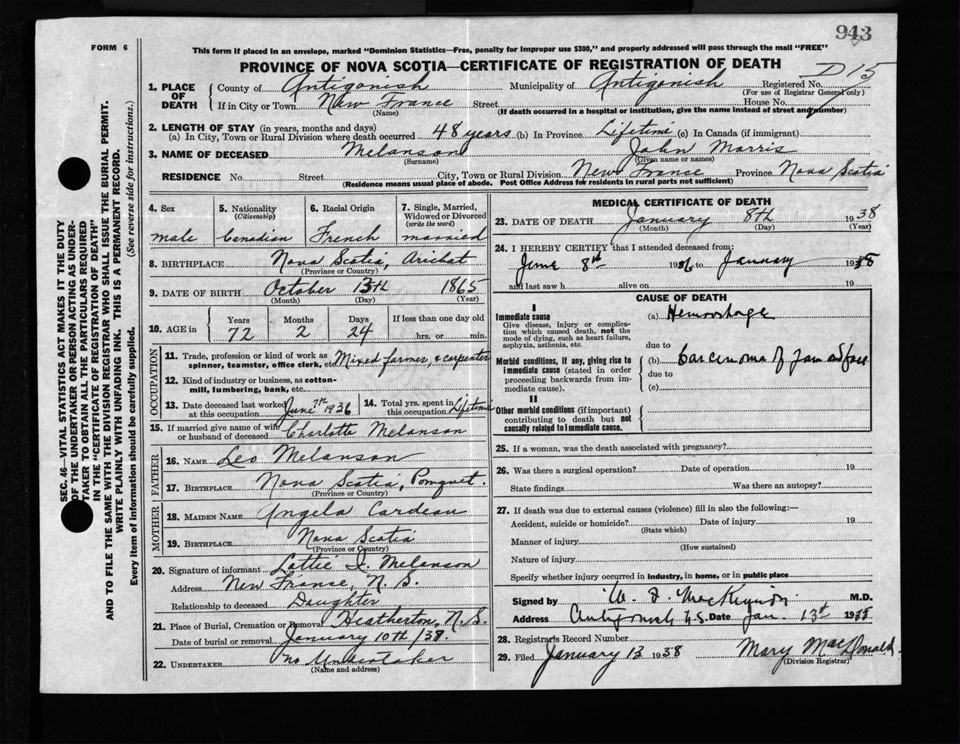 943
FORM 6
This form if placed in an envelope, marked "Dominion Statistics—Free, penalty for improper use $300," and properly addressed will pass through the mail "FREE"
PROVINCE OF NOVA SCOTIA—CERTIFICATE OF REGISTRATION OF DEATH
D15
1. PLACE OF DEATH
County of Antigonish Municipality of Antigonish Registered No.
(For use of Registrar General only)
If in City or Town New France Street House No.
(Name) (If death occurred in a hospital or institution, give the name instead of street and number)
2. LENGTH OF STAY (in years, months and days)
(a) In City, Town or Rural Division where death occurred 48 years (b) In Province Lifetime (c) In Canada (if immigrant)
3. NAME OF DECEASED Melanson John Morris
(Surname) (Given name or names)
RESIDENCE No. Street City, Town or Rural Division New France Province Nova Scotia
(Residence means usual place of abode. Post Office Address for residents in rural parts not sufficient)
4. Sex
male
5. Nationality
(Citizenship)
Canadian
6. Racial Origin
French
7. Single, Married, Widowed or Divorced
(write the word)
married
8. BIRTHPLACE Nova Scotia, Arichat
(Province or Country)
9. DATE OF BIRTH October 13th 1865
(Month) (Day) (Year)
10. AGE in
Years Months Days If less than one day old
72 2 24 hrs. or min.
OCCUPATION
11. Trade, profession or kind of work as spinner, teamster, office clerk, etc. Mixed farmer, & carpenter
12. Kind of industry or business, as cotton-mill, lumbering, bank, etc.
13. Date deceased last worked at this occupation June 7th 1936
14. Total yrs. spent in this occupation Lifetime
15. If married give name of wife or husband of deceased Charlotte Melanson
FATHER
16. NAME Leo Melanson
17. BIRTHPLACE Nova Scotia, Pomquet.
(Province or Country)
MOTHER
18. MAIDEN NAME Angela Cordeau
19. BIRTHPLACE Nova Scotia
(Province or Country)
20. Signature of informant Lottie I. Melanson
Address New France, N.S.
Relationship to deceased Daughter
21. Place of Burial, Cremation or Removal Heatherton, N.S.
Date of burial or removal January 10th /38.
22. UNDERTAKER no Undertaker
(Name and address)
MEDICAL CERTIFICATE OF DEATH
23. DATE OF DEATH January 8th 1938
(Month) (Day) (Year)
24. I HEREBY CERTIFY that I attended deceased from:
June 8th 1936 to January 1938
and last saw h alive on 19
CAUSE OF DEATH
I
Immediate cause
Give disease, injury or complication which caused death, not the mode of dying, such as heart failure, asphyxia, asthenia, etc.
(a) Hemorrhage
due to
Morbid conditions, if any, giving rise to immediate cause (stated in order proceeding backwards from immediate cause).
(b) Carcinoma of jaw and face
due to
(c)
II
Other morbid conditions (if important) contributing to death but not causally related to immediate cause.
25. If a woman, was the death associated with pregnancy?
26. Was there a surgical operation? Date of operation 19
State findings Was there an autopsy?
27. If death was due to external causes (violence) fill in also the following:—
Accident, suicide or homicide? Date of injury 19
(State which)
Manner of injury
(How sustained)
Nature of injury
Specify whether injury occurred in industry, in home, or in public place
Signed by W. F. MacKinnon M.D.
Address Antigonish N.S. Date Jan. 13th 1938
28. Registrar's Record Number
29. Filed January 13 1938 Mary MacDonald
(Division Registrar)
SEC. 46—VITAL STATISTICS ACT MAKES IT THE DUTY
OF THE UNDERTAKER OR PERSON ACTING AS UNDER-
TAKER TO OBTAIN ALL THE PARTICULARS REQUIRED
IN THE "CERTIFICATE OF REGISTRATION OF DEATH"
AND TO FILE THE SAME WITH THE DIVISION REGISTRAR WHO SHALL ISSUE THE BURIAL PERMIT.
WRITE PLAINLY WITH UNFADING INK. THIS IS A PERMANENT RECORD.
Every item of information should be carefully supplied. (See reverse side for instructions.)